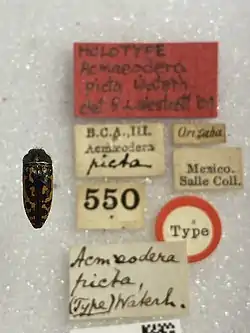 HOLOTYPE
Acmaeodera
picta Waterh.
det. R L Westcott
B.C.A., III.
Acmæodera
picta.
Orizaba
Mexico.
Salle Coll.
550
Type
Acmæodera
picta,
(Type) Waterh.